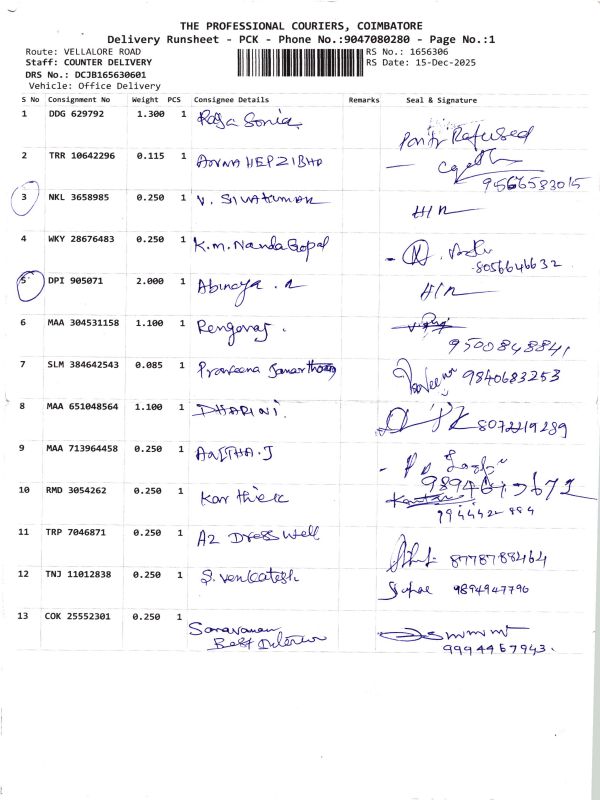 THE PROFESSIONAL COURIERS, COIMBATORE
Delivery Runsheet - PCK - Phone No.:9047080280 - Page No.:1
Route: VELLALORE ROAD RS No.: 1656306
Staff: COUNTER DELIVERY RS Date: 15-Dec-2025
DRS No.: DCJB165630601
Vehicle: Office Delivery
S No Consignment No Weight PCS Consignee Details Remarks Seal & Signature
1 DDG 629792 1.300 1 Raja Sonia
Party Refused
2 TRR 10642296 0.115 1 ANNA HEPZIBHA
9566583015
3 NKL 3658985 0.250 1 V. SIVAKUMAR H/R
4 WKY 28676483 0.250 1 K.M. Nanda Gopal
8056646632
5 DPI 905071 2.000 1 Abinaya . R H/R
6 MAA 304531158 1.100 1 Rengaraj .
9500848841
7 SLM 384642543 0.085 1 Praveena 9840683253
8 MAA 651048564 1.100 1 DHARINI. 8072219289
9 MAA 713964458 0.250 1 ANITHA.J
10 RMD 3054262 0.250 1 Karthick
11 TRP 7046871 0.250 1 A2 Dress Well
8778788464
12 TNJ 11012838 0.250 1 S. Venkatesh 9894947796
13 COK 25552301 0.250 1
Saravanan
Best
9994467943.